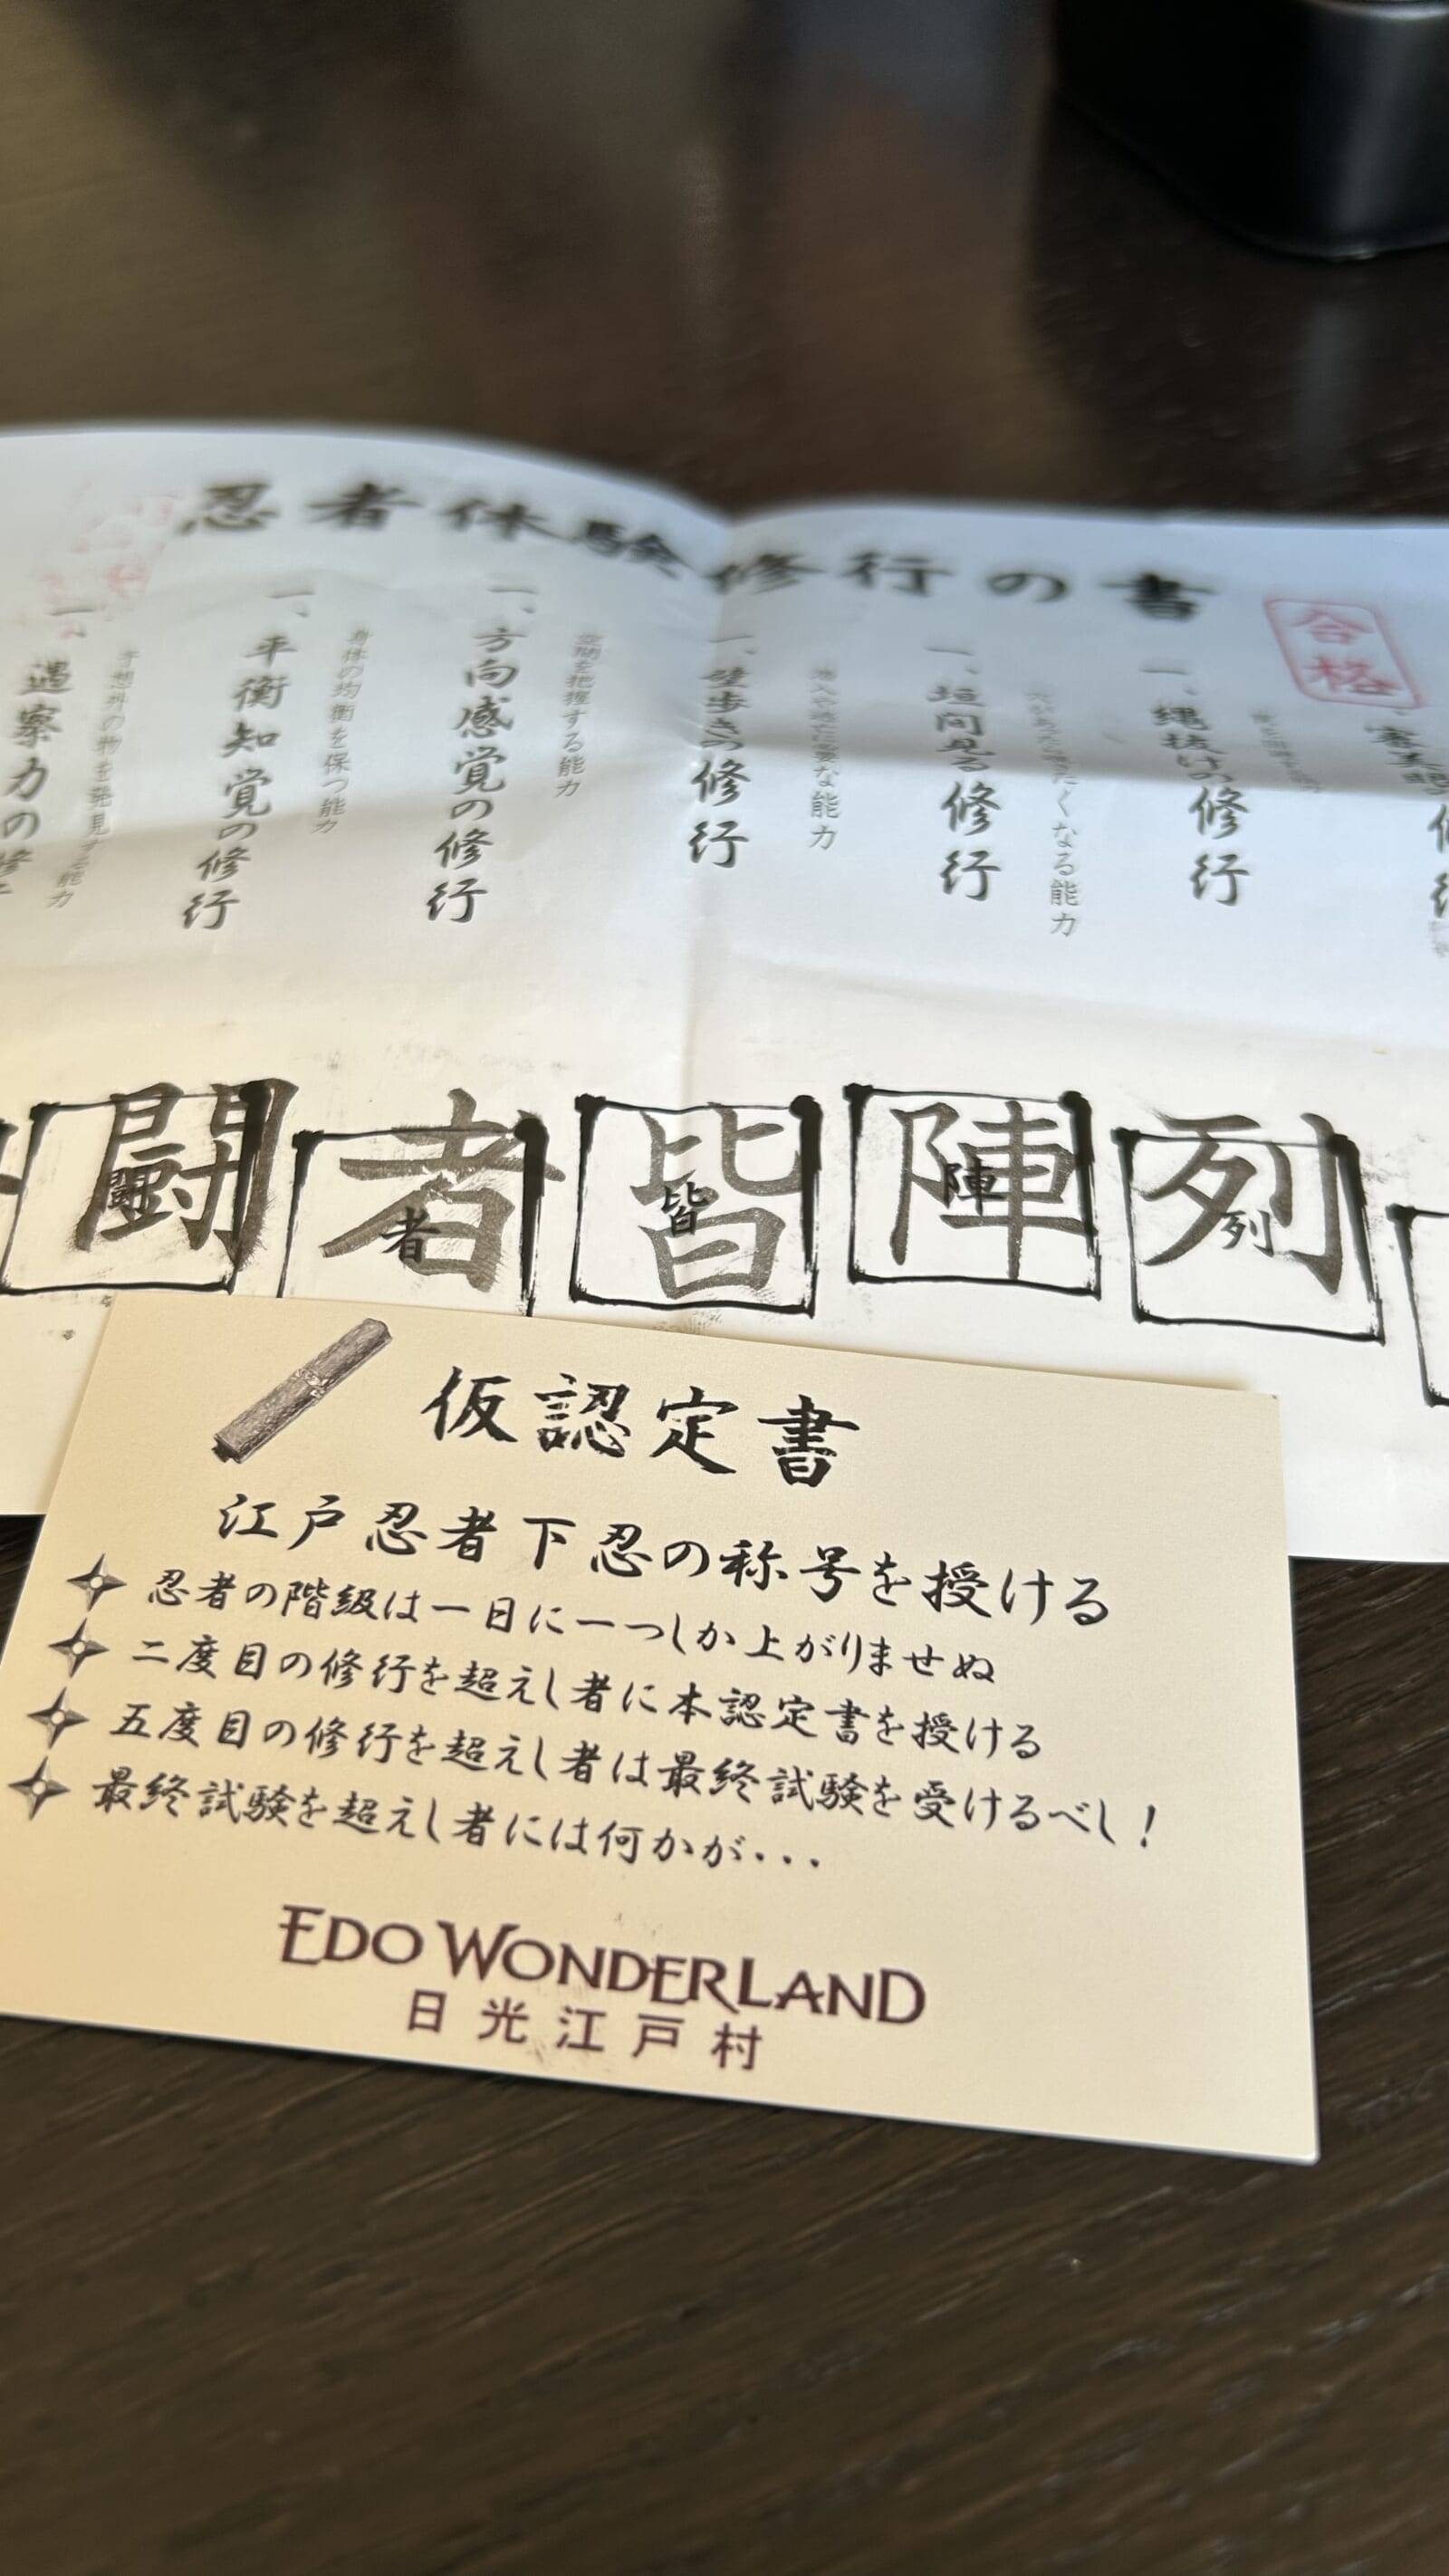 忍者体験修行の書
合格
一、縄抜けの修行
一、垣間見る修行
くなる能力
一、壁歩きの修行
要な能力
一、方向感覚の修行
空間を把握する能力
一、平衡知覚の修行
身体の均衡を保つ能力
予想外の物を発見する能力
列
列
陣
陣
皆
皆
者
者
闘
闘
仮認定書
江戸忍者下忍の称号を授ける
忍者の階級は一日に一つしか上がりませぬ
二度目の修行を超えし者に本認定書を授ける
五度目の修行を超えし者は最終試験を受けるべし！
最終試験を超えし者には何かが・・・
EDO WONDERLAND
日光江戸村